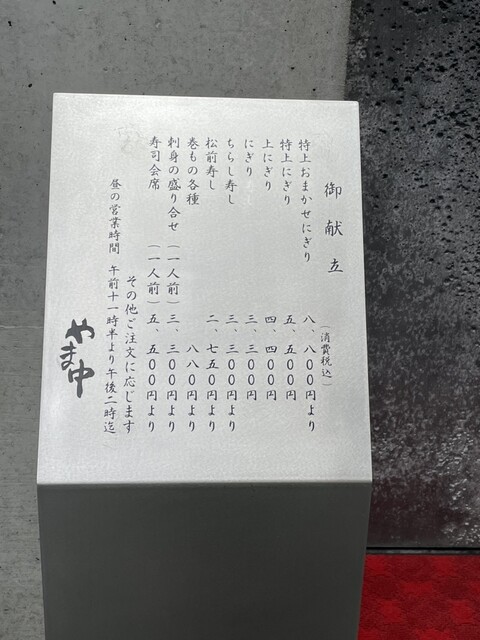 御献立
(消費税込)
特上おまかせにぎり 八、八〇〇円より
特上にぎり 五、五〇〇円
上にぎり 四、四〇〇円
にぎり 三、三〇〇円
ちらし寿し 三、三〇〇円より
松前寿し 二、七五〇円より
巻もの各種 八八〇円より
刺身の盛り合せ (一人前) 三、三〇〇円より
寿司会席 (一人前) 五、五〇〇円より
その他ご注文に応じます
昼の営業時間 午前十一時半より午後二時迄)
やまゆ